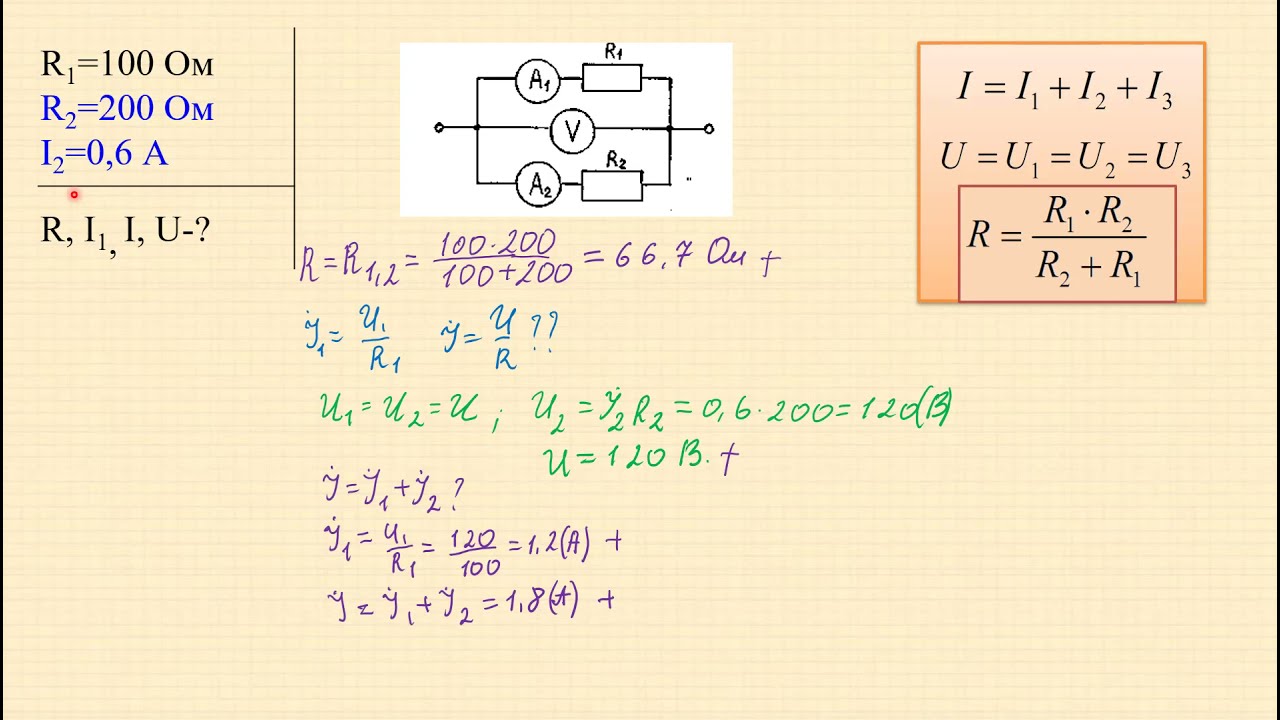 R₁=100 Ом
R₂=200 Ом
I₂=0,6 А
R, I₁, I, U-?
R₁
A₁
V
R₂
A₂
I = I₁ + I₂ + I₃
U = U₁ = U₂ = U₃
R = (R₁ · R₂) / (R₂ + R₁)
R = R₁,₂ = (100·200) / (100+200) = 66,7 Ом +
I₁ = U₁ / R₁ I = U / R ??
U₁ = U₂ = U ; U₂ = I₂ R₂ = 0,6·200 = 120 (В)
U = 120 В. +
I = I₁ + I₂ ?
I₁ = U₁ / R₁ = 120 / 100 = 1,2 (А) +
I = I₁ + I₂ = 1,8 (А) +